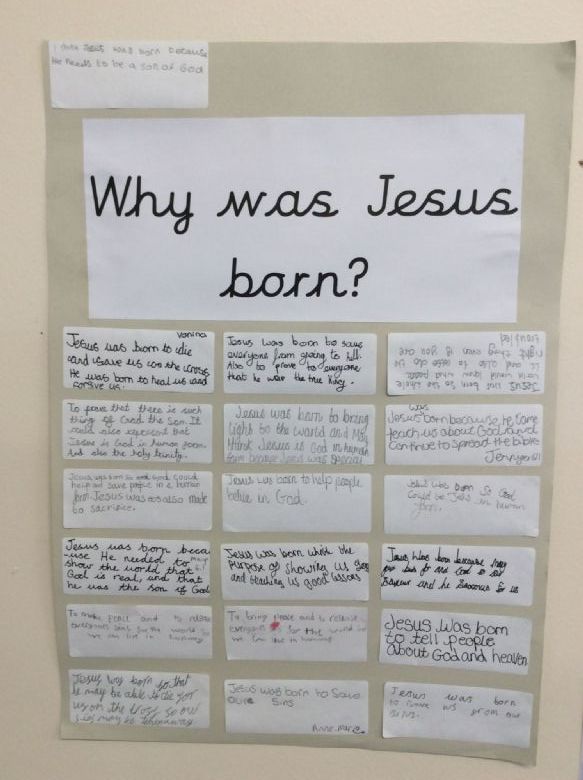 I think Jesus was born because
He needs to be a son of God
Why was Jesus
born?
Vanina
Jesus was born to die
and save us on the cross.
He was born to heal us and
forgive us.
Jesus was born to save
everyone from going to hell.
Also to prove to everyone
that he was the true King.
Jesus was born so the whole
world would know and
is and also to able do
right thing even if you are
To prove that there is such
thing of God the Son. It
could also represent that
Jesus is God in human form.
And also the holy trinity.
Jesus was born to bring
light to the world and
think Jesus is God in human
form because Jesus was special
was
Jesus born because he came
teach us about God and
continue to spread the bible
Jesus was born so God could
help and save people in a human
form. Jesus was also made
to sacrifice.
Jesus was born to help people
belive in God.
Jesus was born so God
could be Jesus in human
form.
Jesus was born becau
-use He needed to
show the world that
God is real, and that
he was the son of God
Jesus was born whith the
Purpose of showing us God
and teaching us good lessons
Jesus was born because
for us and God is our
Saviour and he for us
To make peace and to release
everyones sins for the world so
we can live in harmony
To bring peace and to release
everyones for the world so
we can live in harmony
Jesus was born
to tell people
about God and heaven
Jesus was born so that
he may be able to die for
us on the cross so our
sins may be taken away
Jesus was born to save
our sins
Anne-Marie
Jesus was born
to save us from our
sins.